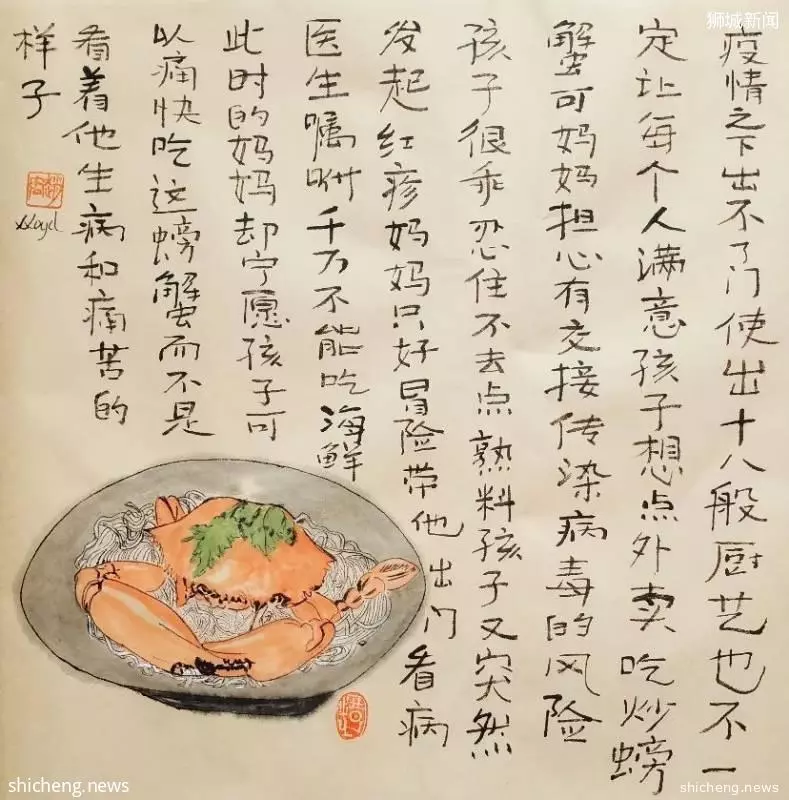 狮城新闻
疫情之下出不了门使出十八般厨艺也不一
定让每个人满意孩子想点外卖吃炒螃
蟹可妈妈担心有交接传染病毒的风险
孩子很乖忍住不去点熟料孩子又突然
发起红疹妈妈只好冒险带他出门看病
医生嘱咐千万不能吃海鲜
此时的妈妈却宁愿孩子可
以痛快吃这螃蟹而不是
看着他生病和痛苦的
样子
Lloyd
shicheng.news
shicheng.news